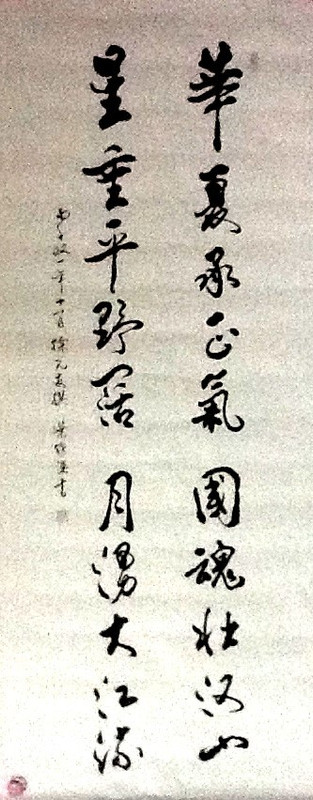 華夏承正氣 國魂壯河山
星垂平野闊 月湧大江流